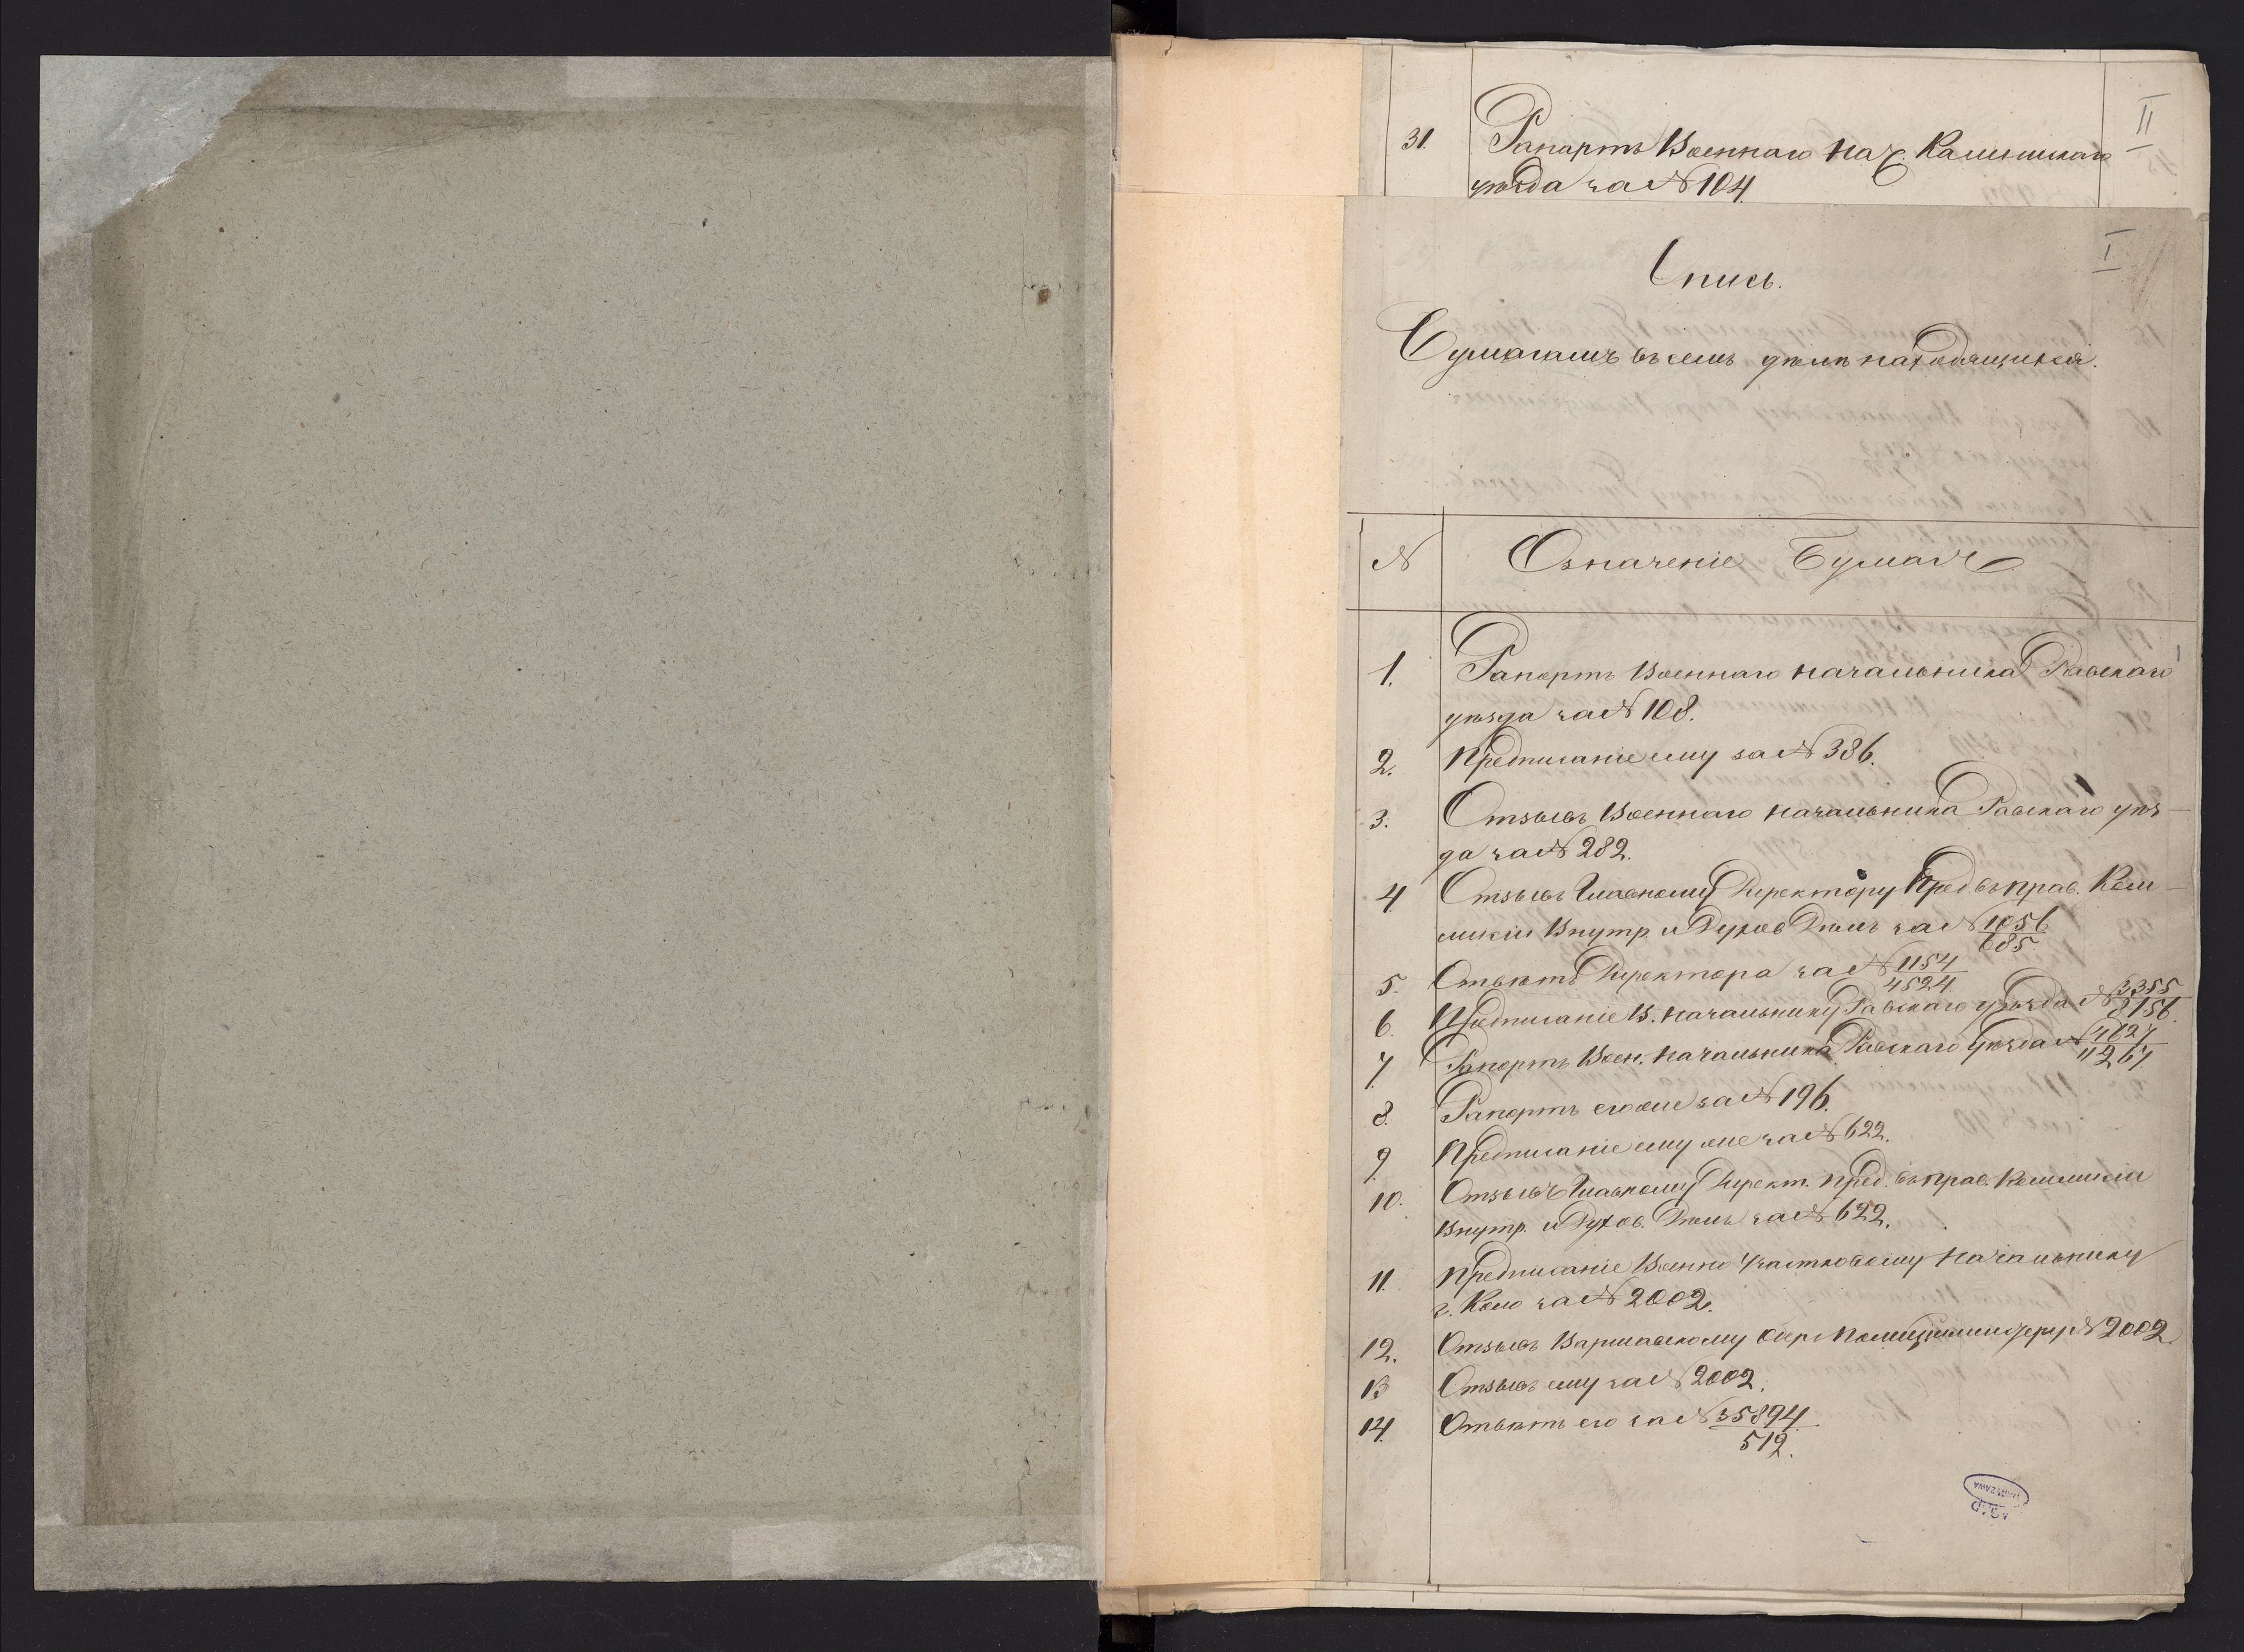 II
31. Рапортъ Военнаго Нач. Калишскаго
уѣзда за № 104.
I
Опись.
Бумагамъ въ семъ дѣлѣ находящимся.
№ Означеніе Бумагъ
1. Рапортъ Военнаго Начальника Равскаго
уѣзда за № 108.
2. Предписаніе ему за № 336.
3. Отзывъ Военнаго Начальника Равскаго уѣз-
да за № 282.
4 Отзывъ Главному Директору Пред. въ прав. Ком-
мисіи Внутр. и Духов Дѣлъ за № 1056/685.
5. Отвѣтъ Директора за № 1154/4524
6. Предписаніе В. Начальнику Равскаго уѣзда № 3355/8156.
7. Рапортъ Воен. Начальника Равскаго Уѣзда № 4627/11267.
8. Рапортъ его же за № 196.
9. Предписаніе ему же за № 622.
10. Отзывъ Главному Директ. Пред. въ прав. Коммисіи
Внутр. и Духов. Дѣлъ за № 622.
11. Предписаніе Военно Участковому Начальнику
г. Коло за № 2002.
12. Отзывъ Варшавскому Обер Полиціймейстеру № 2002.
13 Отзывъ ему за № 2002.
14. Отвѣтъ его за № 35894/512.
WARSZAWA
AGAD